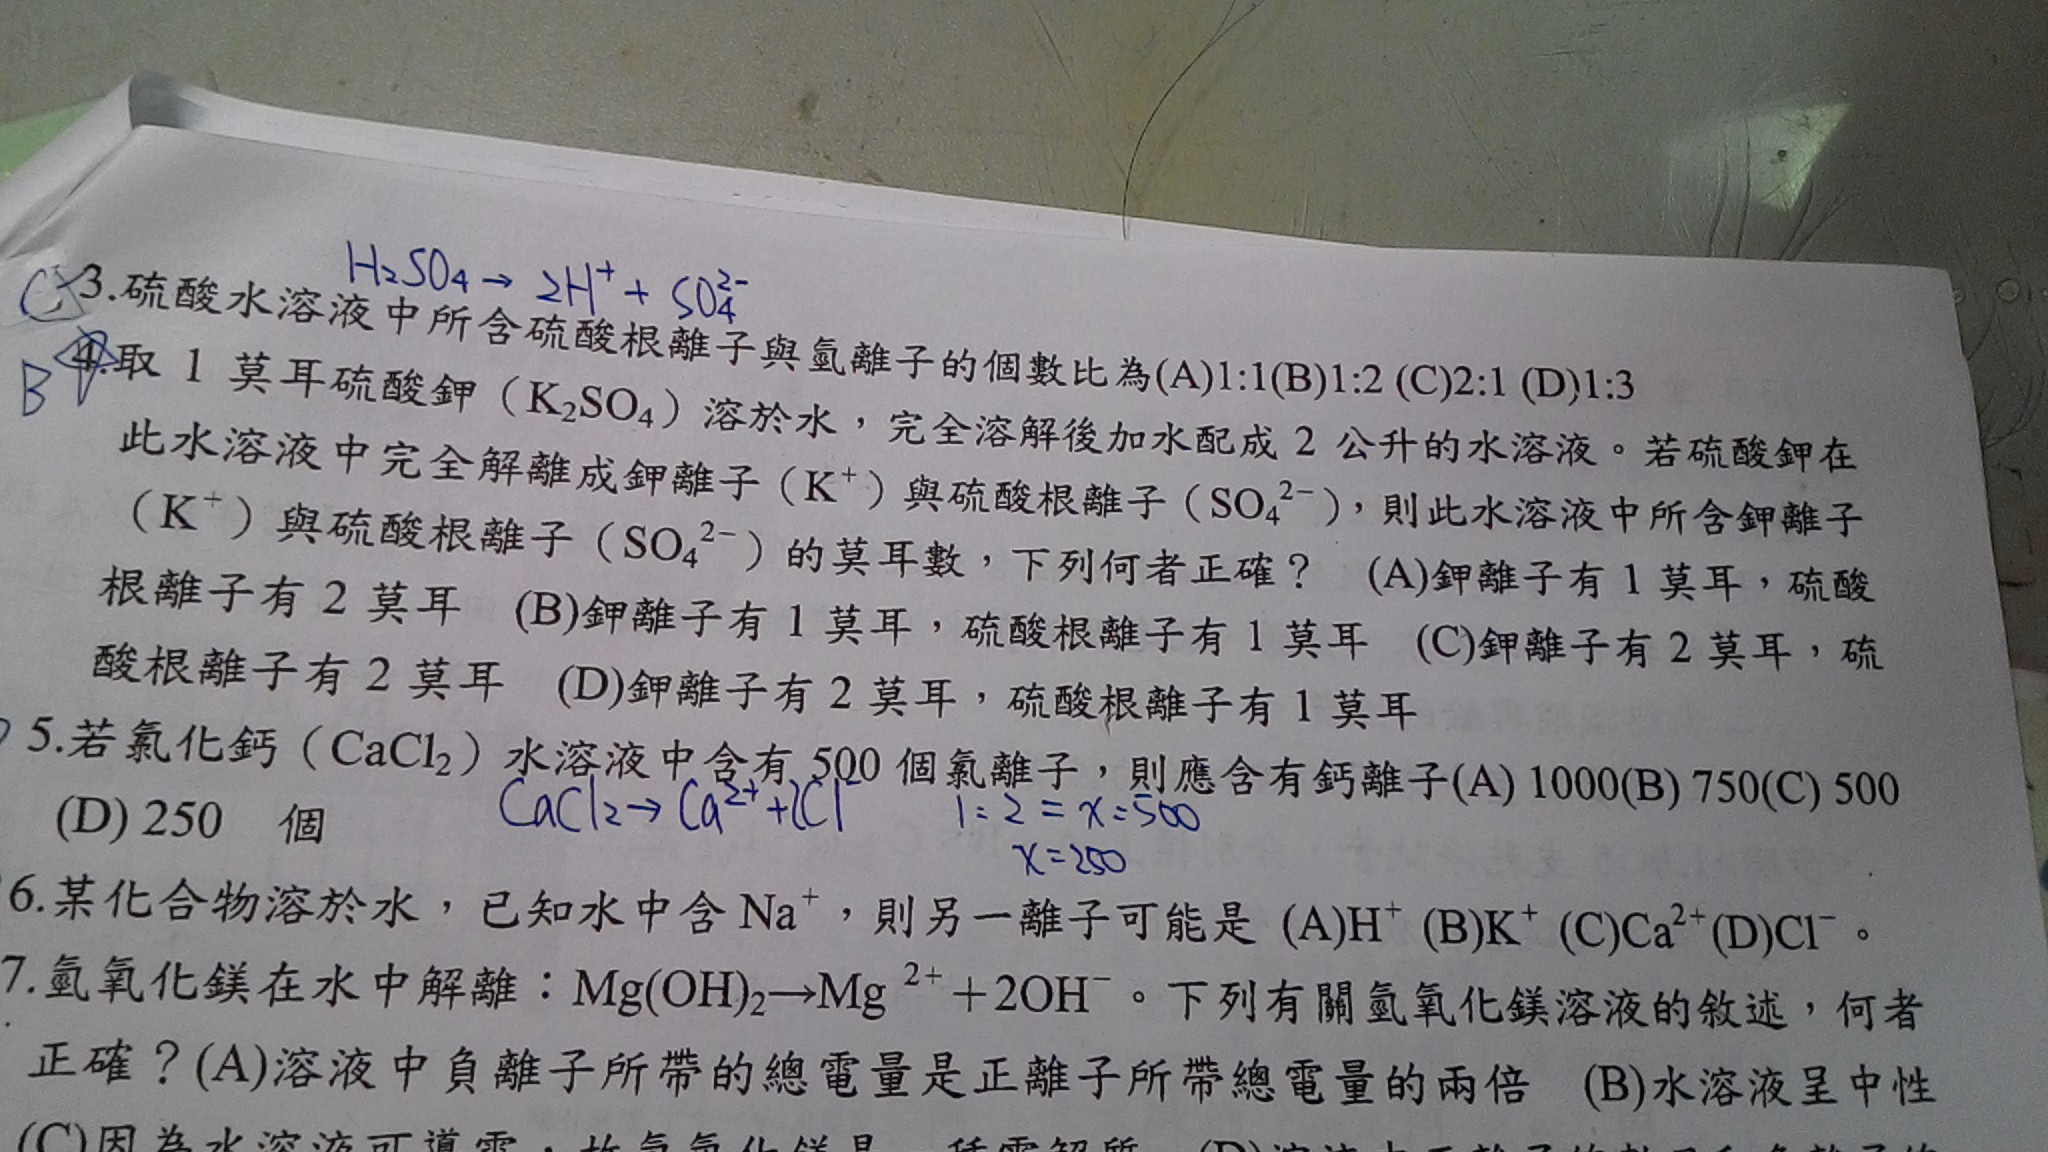 H₂SO₄→ 2H⁺ + SO₄²⁻
3.硫酸水溶液中所含硫酸根離子與氫離子的個數比為(A)1:1(B)1:2 (C)2:1 (D)1:3
B 4.取 1 莫耳硫酸鉀（K₂SO₄）溶於水，完全溶解後加水配成 2 公升的水溶液。若硫酸鉀在
此水溶液中完全解離成鉀離子（K⁺）與硫酸根離子（SO₄²⁻），則此水溶液中所含鉀離子
（K⁺）與硫酸根離子（SO₄²⁻）的莫耳數，下列何者正確？ (A)鉀離子有 1 莫耳，硫酸
根離子有 2 莫耳 (B)鉀離子有 1 莫耳，硫酸根離子有 1 莫耳 (C)鉀離子有 2 莫耳，硫
酸根離子有 2 莫耳 (D)鉀離子有 2 莫耳，硫酸根離子有 1 莫耳
5.若氯化鈣（CaCl₂）水溶液中含有 500 個氯離子，則應含有鈣離子(A) 1000(B) 750(C) 500
CaCl₂→ Ca²⁺+2Cl⁻ 1:2 = x:500
(D) 250 個
x=250
6.某化合物溶於水，已知水中含 Na⁺，則另一離子可能是 (A)H⁺ (B)K⁺ (C)Ca²⁺(D)Cl⁻。
7.氫氧化鎂在水中解離：Mg(OH)₂→Mg ²⁺＋2OH⁻。下列有關氫氧化鎂溶液的敘述，何者
正確？(A)溶液中負離子所帶的總電量是正離子所帶總電量的兩倍 (B)水溶液呈中性
(C)因為水溶液可導電，故氫氧化鎂是一種電解質